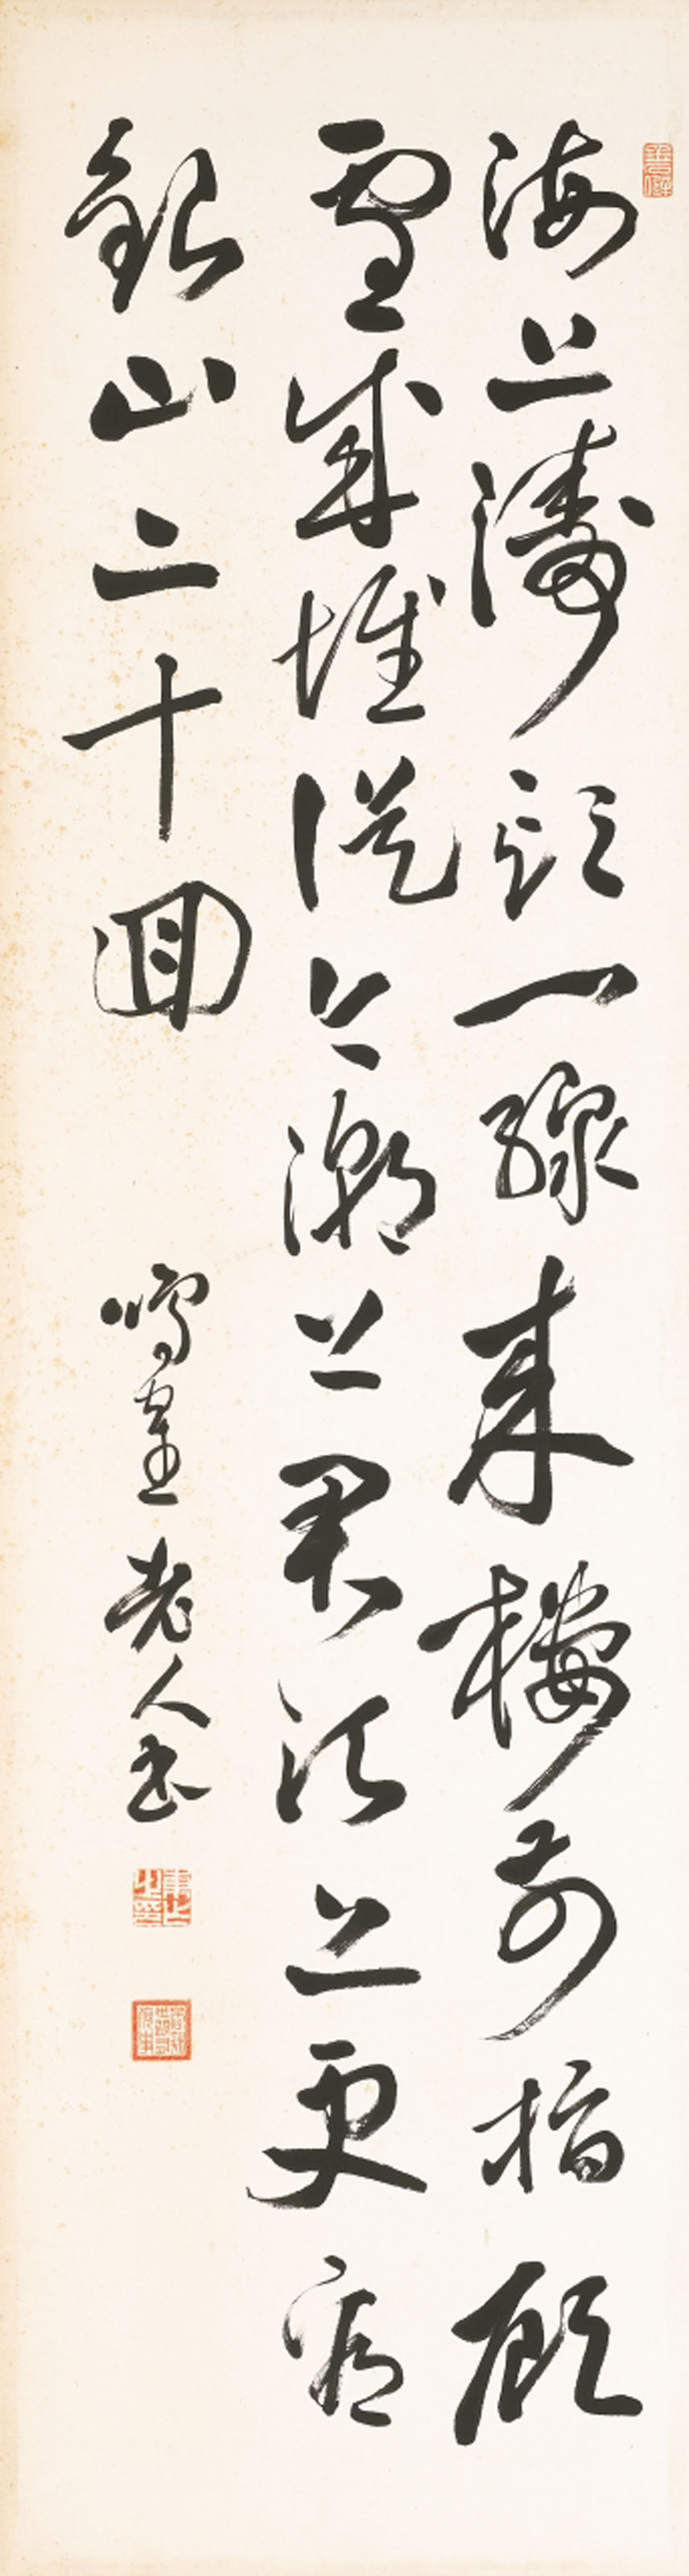 海上濤頭一線來樓前指顧
雪成堆從今潮上君須上更看
銀山二十回
鳴鶴老人書